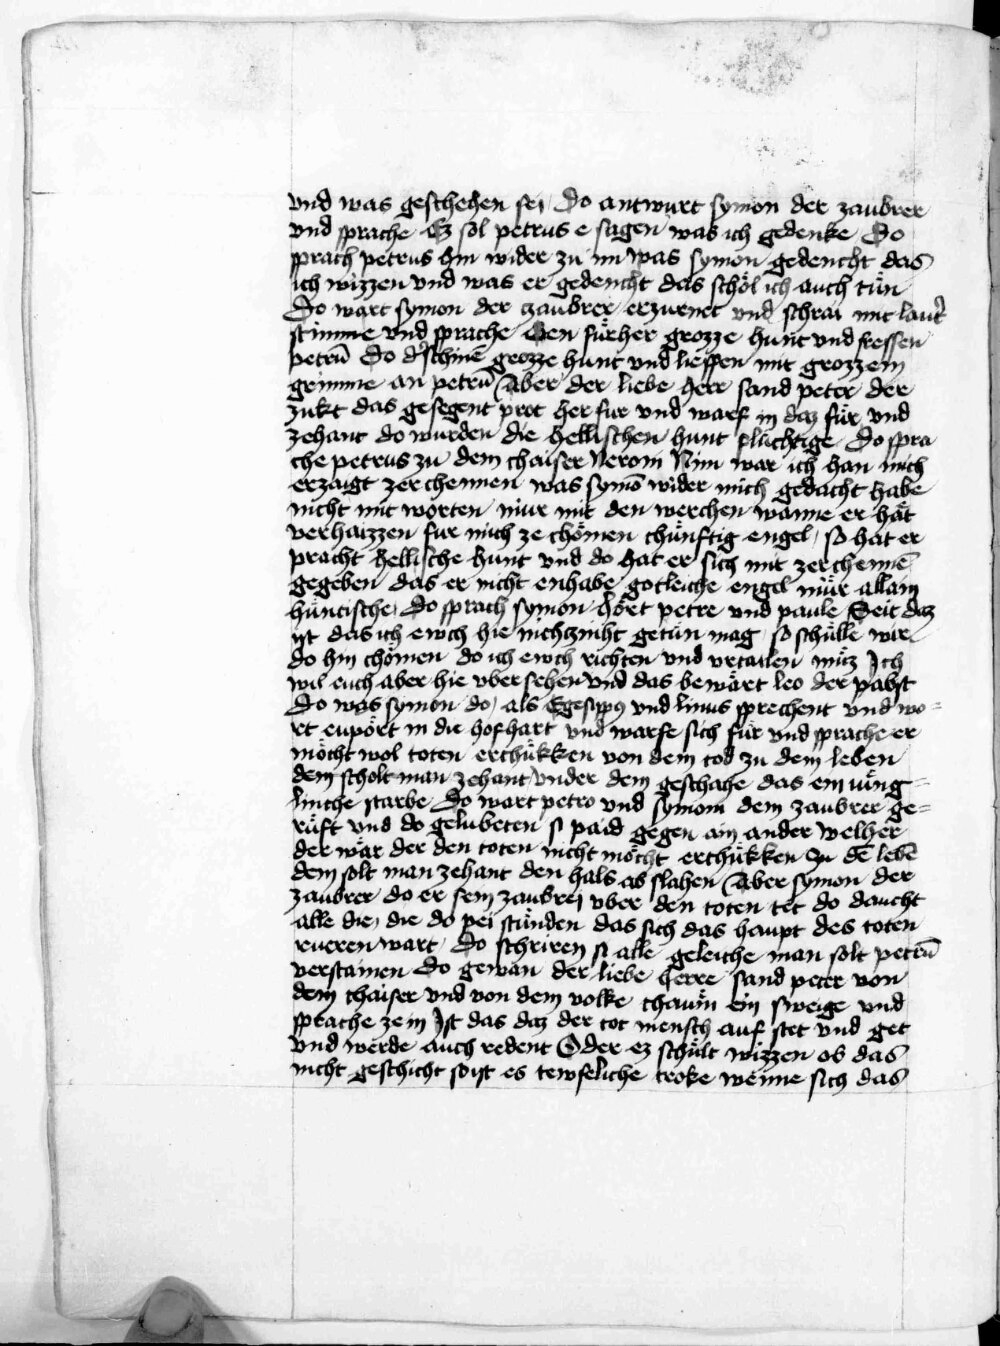 vnd was geschehen sei Do antwurt symon der zaubrer
vnd sprache Ez sol petrus e sagen was ich gedenke Do
sprach petrus hin wider zu im was symon gedencht das
ich wizzen vnd was er gedencht das schöl ich auch tün
Do wart symon der zaubrer erzurnet vnd schrai mit laut̉
stimme vnd sprache Gen fürher grozze hunt vnd fressen
petrū Do d̉schinē grozze hunt vnd lieffen mit grozzem
grimme an petrū Aber der liebe herr sand peter der
zukt das gesegent prot her fur vnd warf in daz für vnd
zehant do wurden die hellischen hunt fluchtige Do spra
che petrus zu dem chaiser Neroni Nim war ich han mich
erzaigt zerchennen was symō wider mich gedacht habe
nicht mit worten nür mit den werchen wanne er hät
verhaizzen fur mich ze chömen chünftig engel so hat er
pracht hellische hunt vnd do hat er sich mit zerchennē
gegeben das er nicht enhabe gotleiche engel nür allain
hüntische Do sprach symon hört petre vnd paule Seit daz
ist das ich ewch hie nichczniht getün mag so schülle wir
do hin chömen do ich ewch richten vnd vrtailen müz Ich
wil euch aber hie vber sehen vnd das bewärt leo der pabst
Do was symon do als Egesippꝯ vnd linus sprechent vnd wo=
rt enpört in die hofhart vnd warfe sich für vnd sprache er
möcht wol toten erchükken von dem tod zu dem leben
dem scholt man zehant vnder dem geschahe das ein iüng=
linche starbe Do wart petro vnd symoni dem zaubrer ge=
rüft vnd do gelubeten si paid gegen ain ander welher
der wär der den toten nicht möcht erchükken zu dē lebē
dem solt man zehant den hals ab slahen Aber symon der
zaubrer do er sein zaubrei vber den toten tet do daucht
alle die die do pei stünden das sich das haupt des toten
rueren wart Do schriren si alle geleiche man solt petrū
verstainen Do gewan der liebe herre sand peter von
dem chaiser vnd von dem volke chaum ein sweige vnd
sprache ze im Ist das daz der tot mensch auf stet vnd get
vnd werde auch redent Oder ez schült wizzen ob das
nicht geschicht so ist es tewfeliche troke wenne sich das